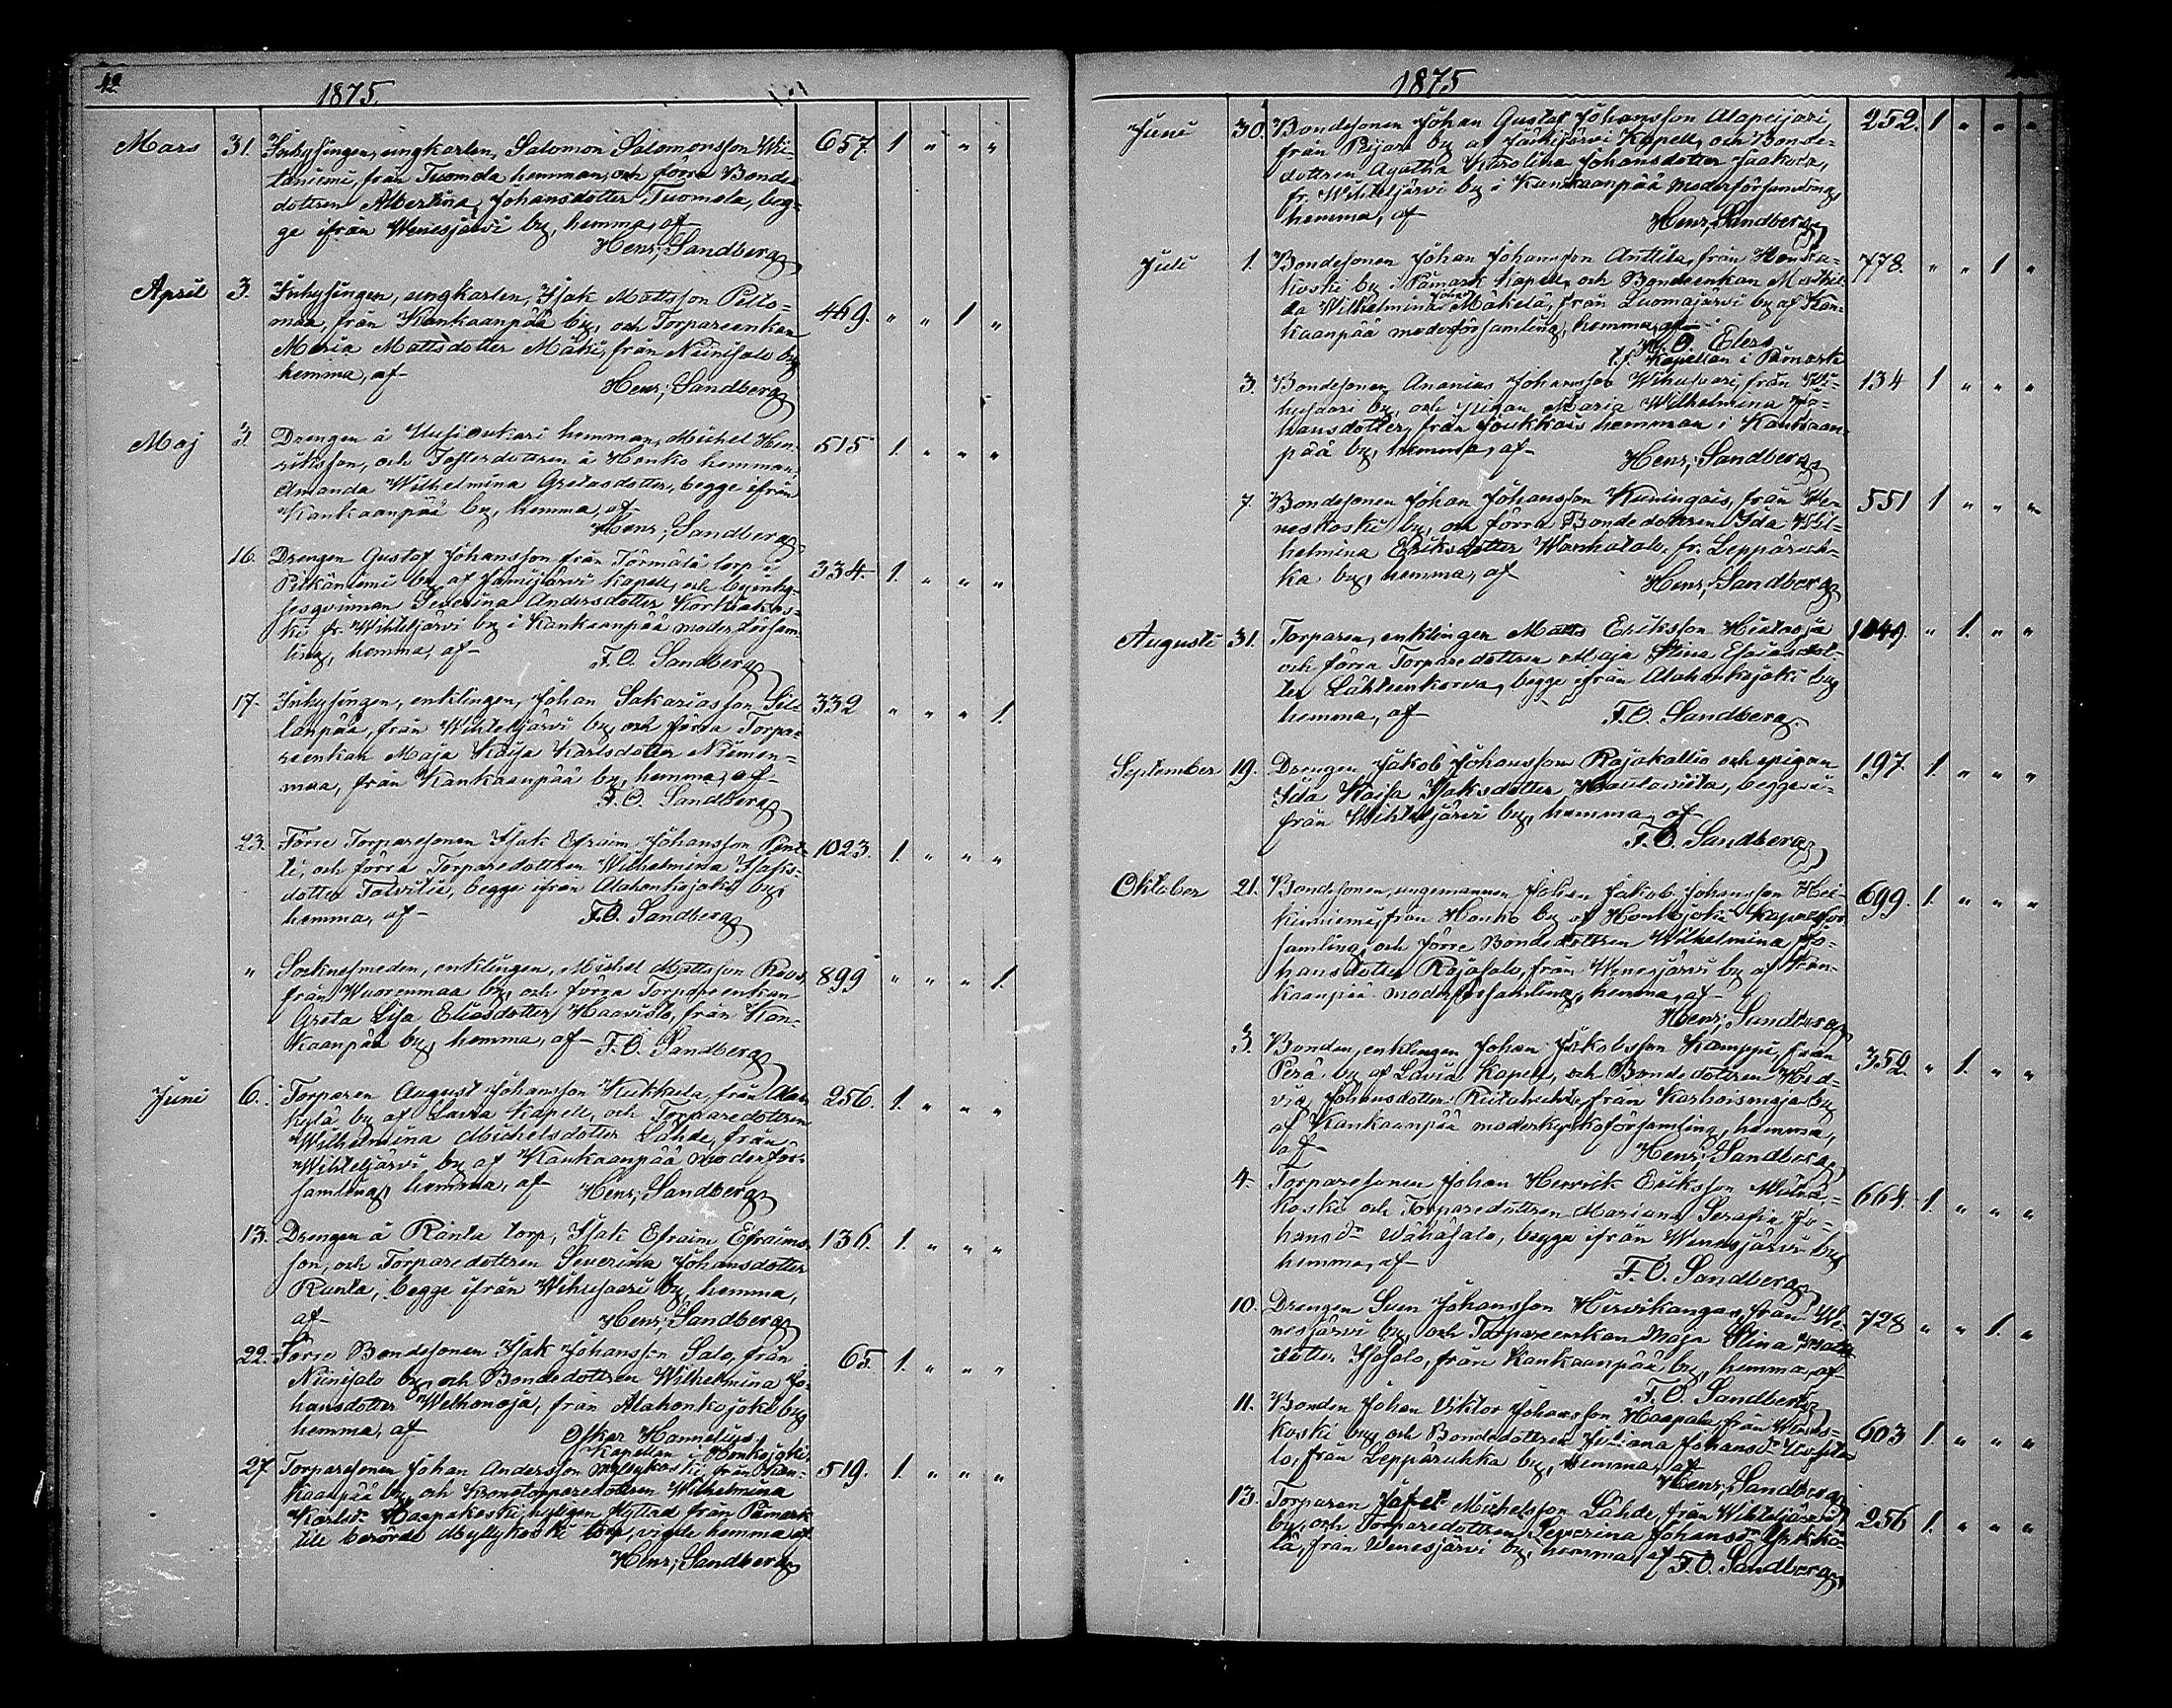 42
1875.
Mars 31. Inhysingen, ungkarlen, Salomon Salomonsson Wii- 657. 1. " " "
taniemi, från Tuomola hemman, och förra Bonde
dottren Albertina Johansdotter Tuomola, beg-
ge ifrån Wenesjärvi by, hemma, af
Henr; Sandberg
April 3. Inhysingen, ungkarlen, Isak Mattsson Pelto- 469. " " 1 "
maa, från Kankaanpää by, och Torpareenkan
Maria Mattsdotter Mäki, från Niinisalo by
hemma, af
Henr; Sandberg
Maj Drengen å Uusioukari hemman, Michel Hen- 515 1. " " "
riksson, och Fosterdottren å Honko hemman
Amanda Wilhelmina Gretasdotter, begge ifrån
Kankaanpää by, hemma, af
Henr; Sandberg
16. Drengen Gustaf Johansson från Törmälä torp i 334. 1. " " "
Pitkäniemi by af Jämijärvi kapell, och byinhy-
sesqvinnan Severina Andersdotter Korkiakos-
ki fr. Wihteljärvi by i Kankaanpää moderförsam
ling, hemma, af
F.O. Sandberg
17. Inhysingen, enklingen, Johan Sakariasson Sil- 332 " " " 1.
lanpää, från Wihteljärvi by, och förra Torpa-
reenkan Maja Kaisa Karlsdotter Niemen-
maa, från Kankaanpää by, hemma, af
F.O. Sandberg
23. Förre Torparesonen Isak Efraim Johansson Pent- 1023. 1. " " "
ti, och förra Torparedottren Wilhelmina Isaks-
dotter Toivitie, begge ifrån Alahonkajoki by,
hemma, af
F.O. Sandberg
" Socknesmeden, enklingen, Michel Mattsson Roos, 899 " " " 1.
från Wuorenmaa by, och förra Torpareenkan
Greta Lisa Eliasdotter Haavisto, från Kan-
kaanpää by, hemma, af F.O. Sandberg
Juni 6. Torparen August Johansson Kukkula, från 256. 1. " " "
kylä by af Lavia Kapell, och Torparedottren
Wilhelmina Michelsdotter Lähde, från
Wihteljärvi by af Kankaanpää moderför-
samling, hemma, af Henr; Sandberg
13. Drengen å Ranta torp, Isak Efraim Efraims- 136. 1. " " "
son, och Torparedottren Severina Johansdotter
Ranta, begge ifrån Wihusaari by, hemma,
af
Henr; Sandberg
22. Förre Bondesonen Isak Johansson Salo, från 65. 1. " " "
Niinisalo by, och Bondedottren Wilhelmina Jo-
hansdotter Welhonoja, från Alahonkajoki by
hemma, af
Oskar Hannelius
Kapellan i Honkajoki
27 Torparesonen Johan Andersson Myllykoski, från Kan- 519. 1. " " "
kaanpää by, och Kronotorparedottren Wilhelmina
Karlsdr Haapakoski, hvilken flyttad från Påmark
till berörde Myllykoski torp, vigde hemma af
Henr; Sandberg
1875
Juni 30. Bondesonen Johan Gustaf Johansson Alapeijari, 252. 1 " " "
från Peijari by af Jämijärvi Kapell, och Bonde-
dottren Agatha Karolina Johansdotter Jaakola,
fr. Wihteljärvi by i Kankaanpää moderförsamling,
hemma, af
Henr; Sandberg
Juli 1. Bondesonen Johan Johansson Anttila, från 778. " " 1 "
koski by i Påmark Kapell, och Bondeenkan Mathil-
da Wilhelmina Mäkelä, från Luomajärvi by af Kan-
kaanpää moderförsamling, hemma, af
O. Elers
t.f. Kapellan i Påmark
3. Bondesonen Ananias Johansson Wihusaari, från Wi- 134 1 " " "
husaari by, och pigan Maria Wilhelmina Jo-
hansdotter, från Joukkais hemman i Kankaan-
pää by, hemma, af
Henr; Sandberg
7. Bondesonen Johan Johansson Kuningais, från We- 551 1 " " "
neskoski by, och förra Bondedottren Ida Wil-
helmina Eriksdotter Wanhatalo, fr. Leppäruh-
ka by, hemma, af
Henr; Sandberg
Augusti 31. Torparen, enklingen Matts Eriksson Hietaoja 1049. " 1. " "
och förra Torparedottren Maja Stina Esaiasdot-
ter Lähteenkorva, begge ifrån Alahonkajoki by
hemma, af
F.O. Sandberg
September 19. Drengen Jakob Johansson Rajakallio och pigan 197. 1. " " "
Ida Kaisa Isaksdotter Rautaviita, begge i-
från Wihteljärvi by, hemma, af
F.O. Sandberg
Oktober 21. Bondesonen, ungemannen Johan Jakob Johansson Hei- 699. 1. " " "
kinniemi, från Honko by af Honkajoki Kapellför
samling, och förre Bondedottren Wilhelmina Jo-
hansdotter Rajasalo, från Wenesjärvi by af Kan-
kaanpää moderförsamling, hemma, af
Henr; Sandberg
3. Bonden, enklingen Johan Jakobsson Kamppi, från 352. " 1. " "
Perä by af Lavia Kapell, och Bondedottren Hed-
vig Johansdotter Riitahuhta, från Karhoismaja by
af Kankaanpää moderkyrkoförsamling, hemma,
af
Henr; Sandberg
4. Torparesonen Johan Henrik Eriksson 664. 1. " " "
koski och Torparedottren Mariana Serafia Jo-
hansdr Wähäsalo, begge ifrån Wenesjärvi by
hemma, af
F.O. Sandberg
10. Drengen Sem Johansson Hirvikangas, från We- 728 " " 1. "
nesjärvi by, och Torpareenkan Maja Stina
dotter Isosalo, från Kankaanpää by, hemma, af
F.O. Sandberg
11. Bonden Johan Viktor Johansson Haapala, från Wenes- 603 1. " " "
koski by, och Bondedottren Juliana Johansdr
lo, från Leppäruhka by, hemma, af
Henr; Sandberg
13. Torparen Jafet Michelsson Lähde, från Wihteljärvi 256 1. " " "
by, och Torparedottren Severina Johansdr
lä, från Wenesjärvi by, hemma, af F.O. Sandberg